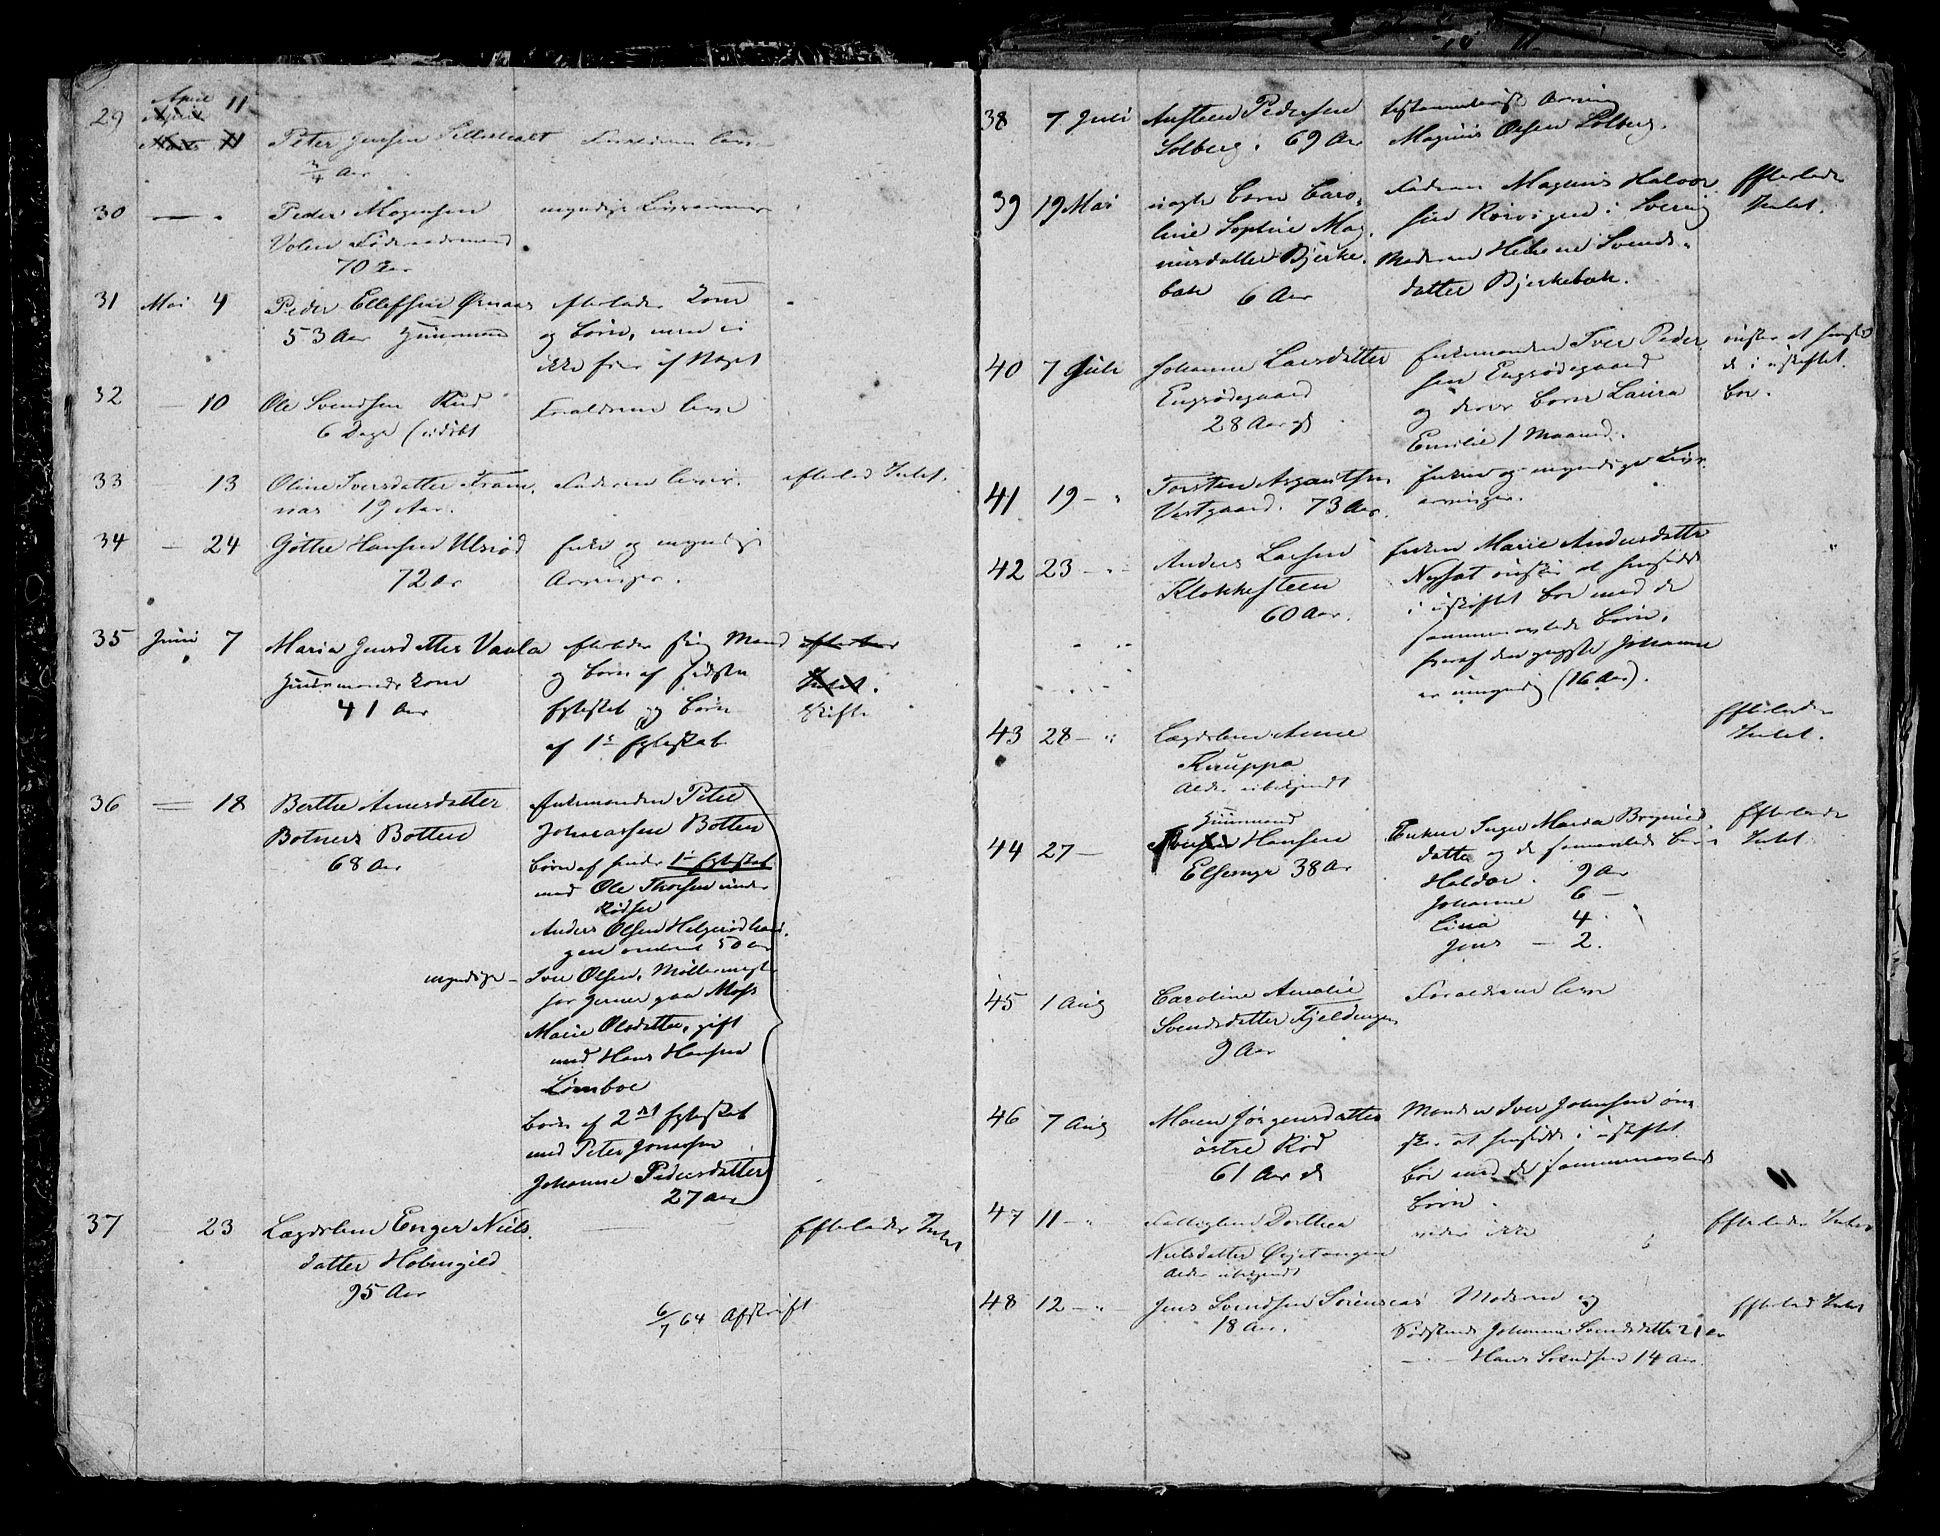 29 April 11
Peter Jensen
3/4 Aar
Forældrene lever
30 Peder Mogensen
Volen Føderaadsmand
70 Aar
myndige Livsarvinger
31 Mai 4 Peder Ellefsen Ørnaas
53 Aar Huusmand
efterlader Kone
og Børn, men ei
ikke frie af Noget
32 — 10 Ole Svendsen Rud
6 Dage (udøbt
Forældrene lever
33 — 13 Oline Iversdatter
19 Aar.
Faderen lever.
efterlod Intet.
34 — 24 Gøthe Hansen Ulsrød
72 Ar
Enke og myndige
Arvinger.
35 Juni 7 Maria Jensdatter Vaula
Huusmands Kone
41 Aar
efterlader sig Mand
og Børn af sidste
Egteskab og Børn
af 1ste Egteskab
efterlader
Intet.
Skifte
36 — 18 Berthe Arnesdatter
Botners Botten
68 Aar
Enkemanden Peter
Johnassen Botten
Børn af hendes 1ste Egteskab
med Ole Thorsen under
Rødsen
Anders Olsen Helgerød
50 Aar
myndige — Iver Olsen, Møllermester
hos Gerner paa Moss
Marie Olsdatter, gift
med Hans Hansen
Lømboe
Børn af 2det Egteskab
med Peter Jonassen
Johanne Pedersdatter
27 Aar
37 — 23 Lægdslem Enger Niels
datter Holmsgild
95 Aar
Efterlader Intet
6/7 64 Afskrift
38 7 Juli Austeen Pedersen
Solberg. 69 Aar
testamenterist Arving
Magnus Olsen Solberg.
39 19 Mai uægte Barn Caro-
line Sophie Mag-
nusdatter Bjerke-
bak 6 Aar
Faderen Magnus Halvor-
sen Rørvigen i Sverrig
Moderen Helene Svends-
datter Bjerkebak.
Efterlader
Intet.
40 7 Juli Johanne Larsdatter
Engsødegaard
28 Aar gl
Enkemanden Iver Peder-
sen Engsødegaard
og deres Barn Laura
Emilie 1 Maaned.
ønsker at hensid
de i uskiftet
Bo.
41 19 — Torsten Asgautsen
Vestgaard. 73 Aar.
Enken og myndige Livs-
arvinger.
42 23 — Anders Larsen
Klokkesteen
60 Aar.
Enken Marie Andersdatter
ønsker at hensidde
i uskiftet Bo med de
sammenavlede Børn,
hvoraf den yngste Johanne
er umyndig (16 Aar).
43 28 — Lægdslem Anne
Knuppa
Alder ubekjendt
Efterlader
Intet.
44 27 — Huusmand
Hansen
Elsengr 38 Ar
Enken Inger Maria Brynild
datter og de samavlede Børn
Haldor. 9 Ar
Johanne 6 —
Lina 4
Jens — 2.
Efterlader
Intet.
45 1 Aug Caroline Amalie
Svendsdatter Fjeldengen
9 Aar
Forældrene lever
46 7 Aug Maren Jørgensdatter
østre Rød
61 Aar gl
Manden Iver Johnsen øn-
sker at hensidde i uskiftet
Bo med de sammenavlede
Børn.
47 11 — Fattiglem Dorthea
Nielsdatter Øretangen
Alder ubekjendt
vides ikke
Efterlader Intet
48 12 — Jens Svendsen Sørensaas
18 Aar.
Moderen og
Sødskende Johanne Svendsdatter 21 Ar
Hans Svendsen 14 Aar
Efterlod Intet